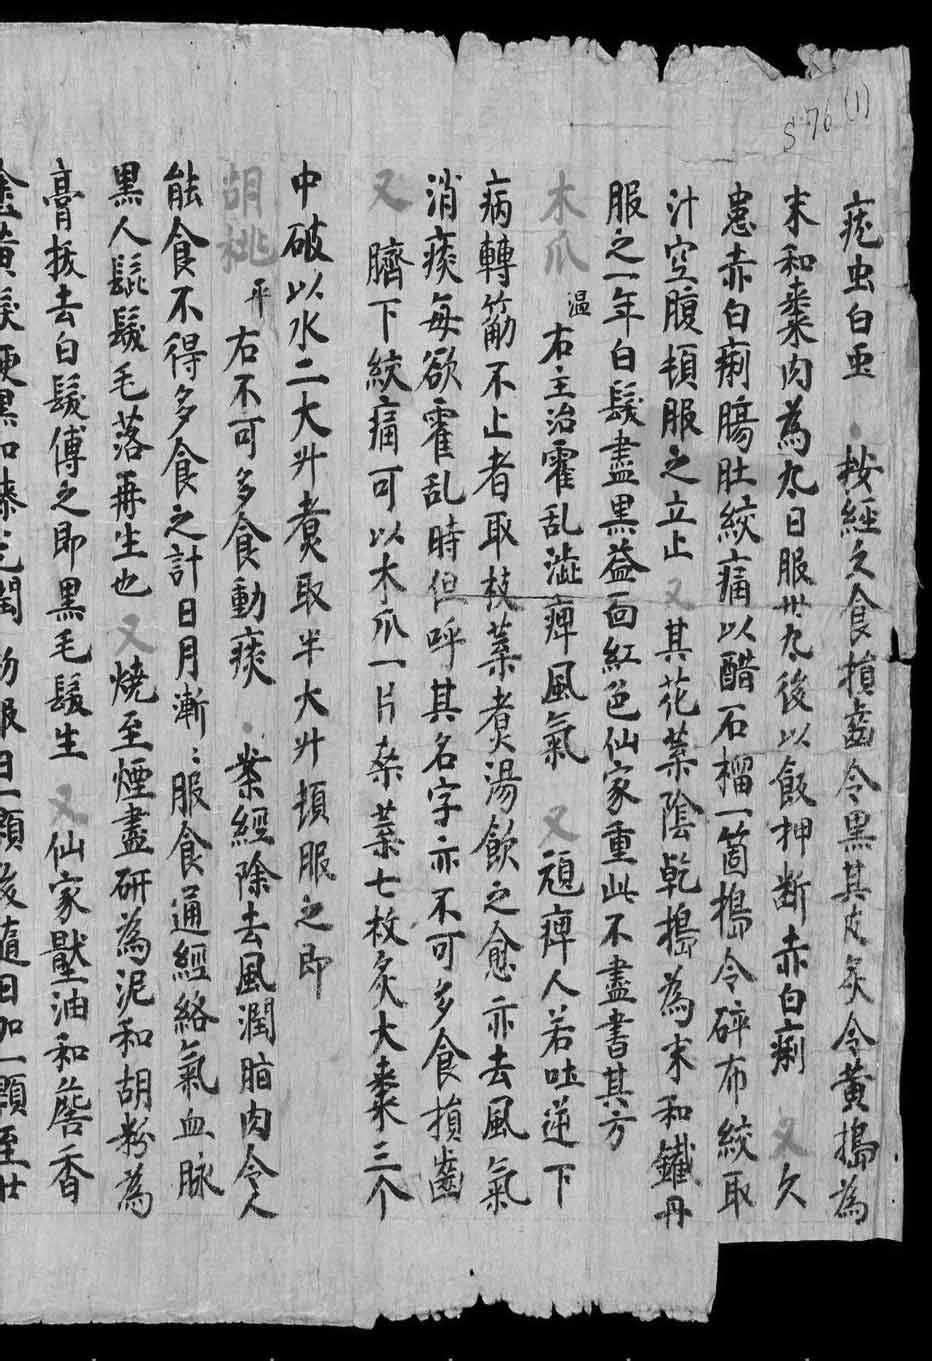 S 76 (1)
疣虫白虫 按經文食損齒令黒其皮炙令黄搗為
末和棗肉為丸日服卅丸後以飯押断赤白痢 又久
患赤白痢腸肚絞痛以醋石榴一箇搗令碎布絞取
汁空腹頓服之立止 又其花葉陰乾搗為末和鐵丹
服之一年白髮盡黒益面紅色仙家重此不盡書其方
木爪 温 右主治霍乱澁痺風氣 又頑痺人若吐逆下
病轉筋不止者取枝葉煮湯飲之愈亦去風氣
消痰每欲霍乱時但呼其名字亦不可多食損齒
又 臍下絞痛可以木爪一片桒葉七枚炙大棗三个
中破以水二大升煮取半大升頓服之即
胡桃 平 右不可多食動痰 案經除去風潤脂肉令人
能食不得多食之計日月漸〻服食通經絡氣血脉
黒人髭髮毛落再生也 又燒至煙盡研為泥和胡粉為
膏拔去白髮傅之即黒毛髮生 又仙家壓油和麝香
塗黄髮便黒如漆光潤 初服日一顆後隨日加一顆至廿